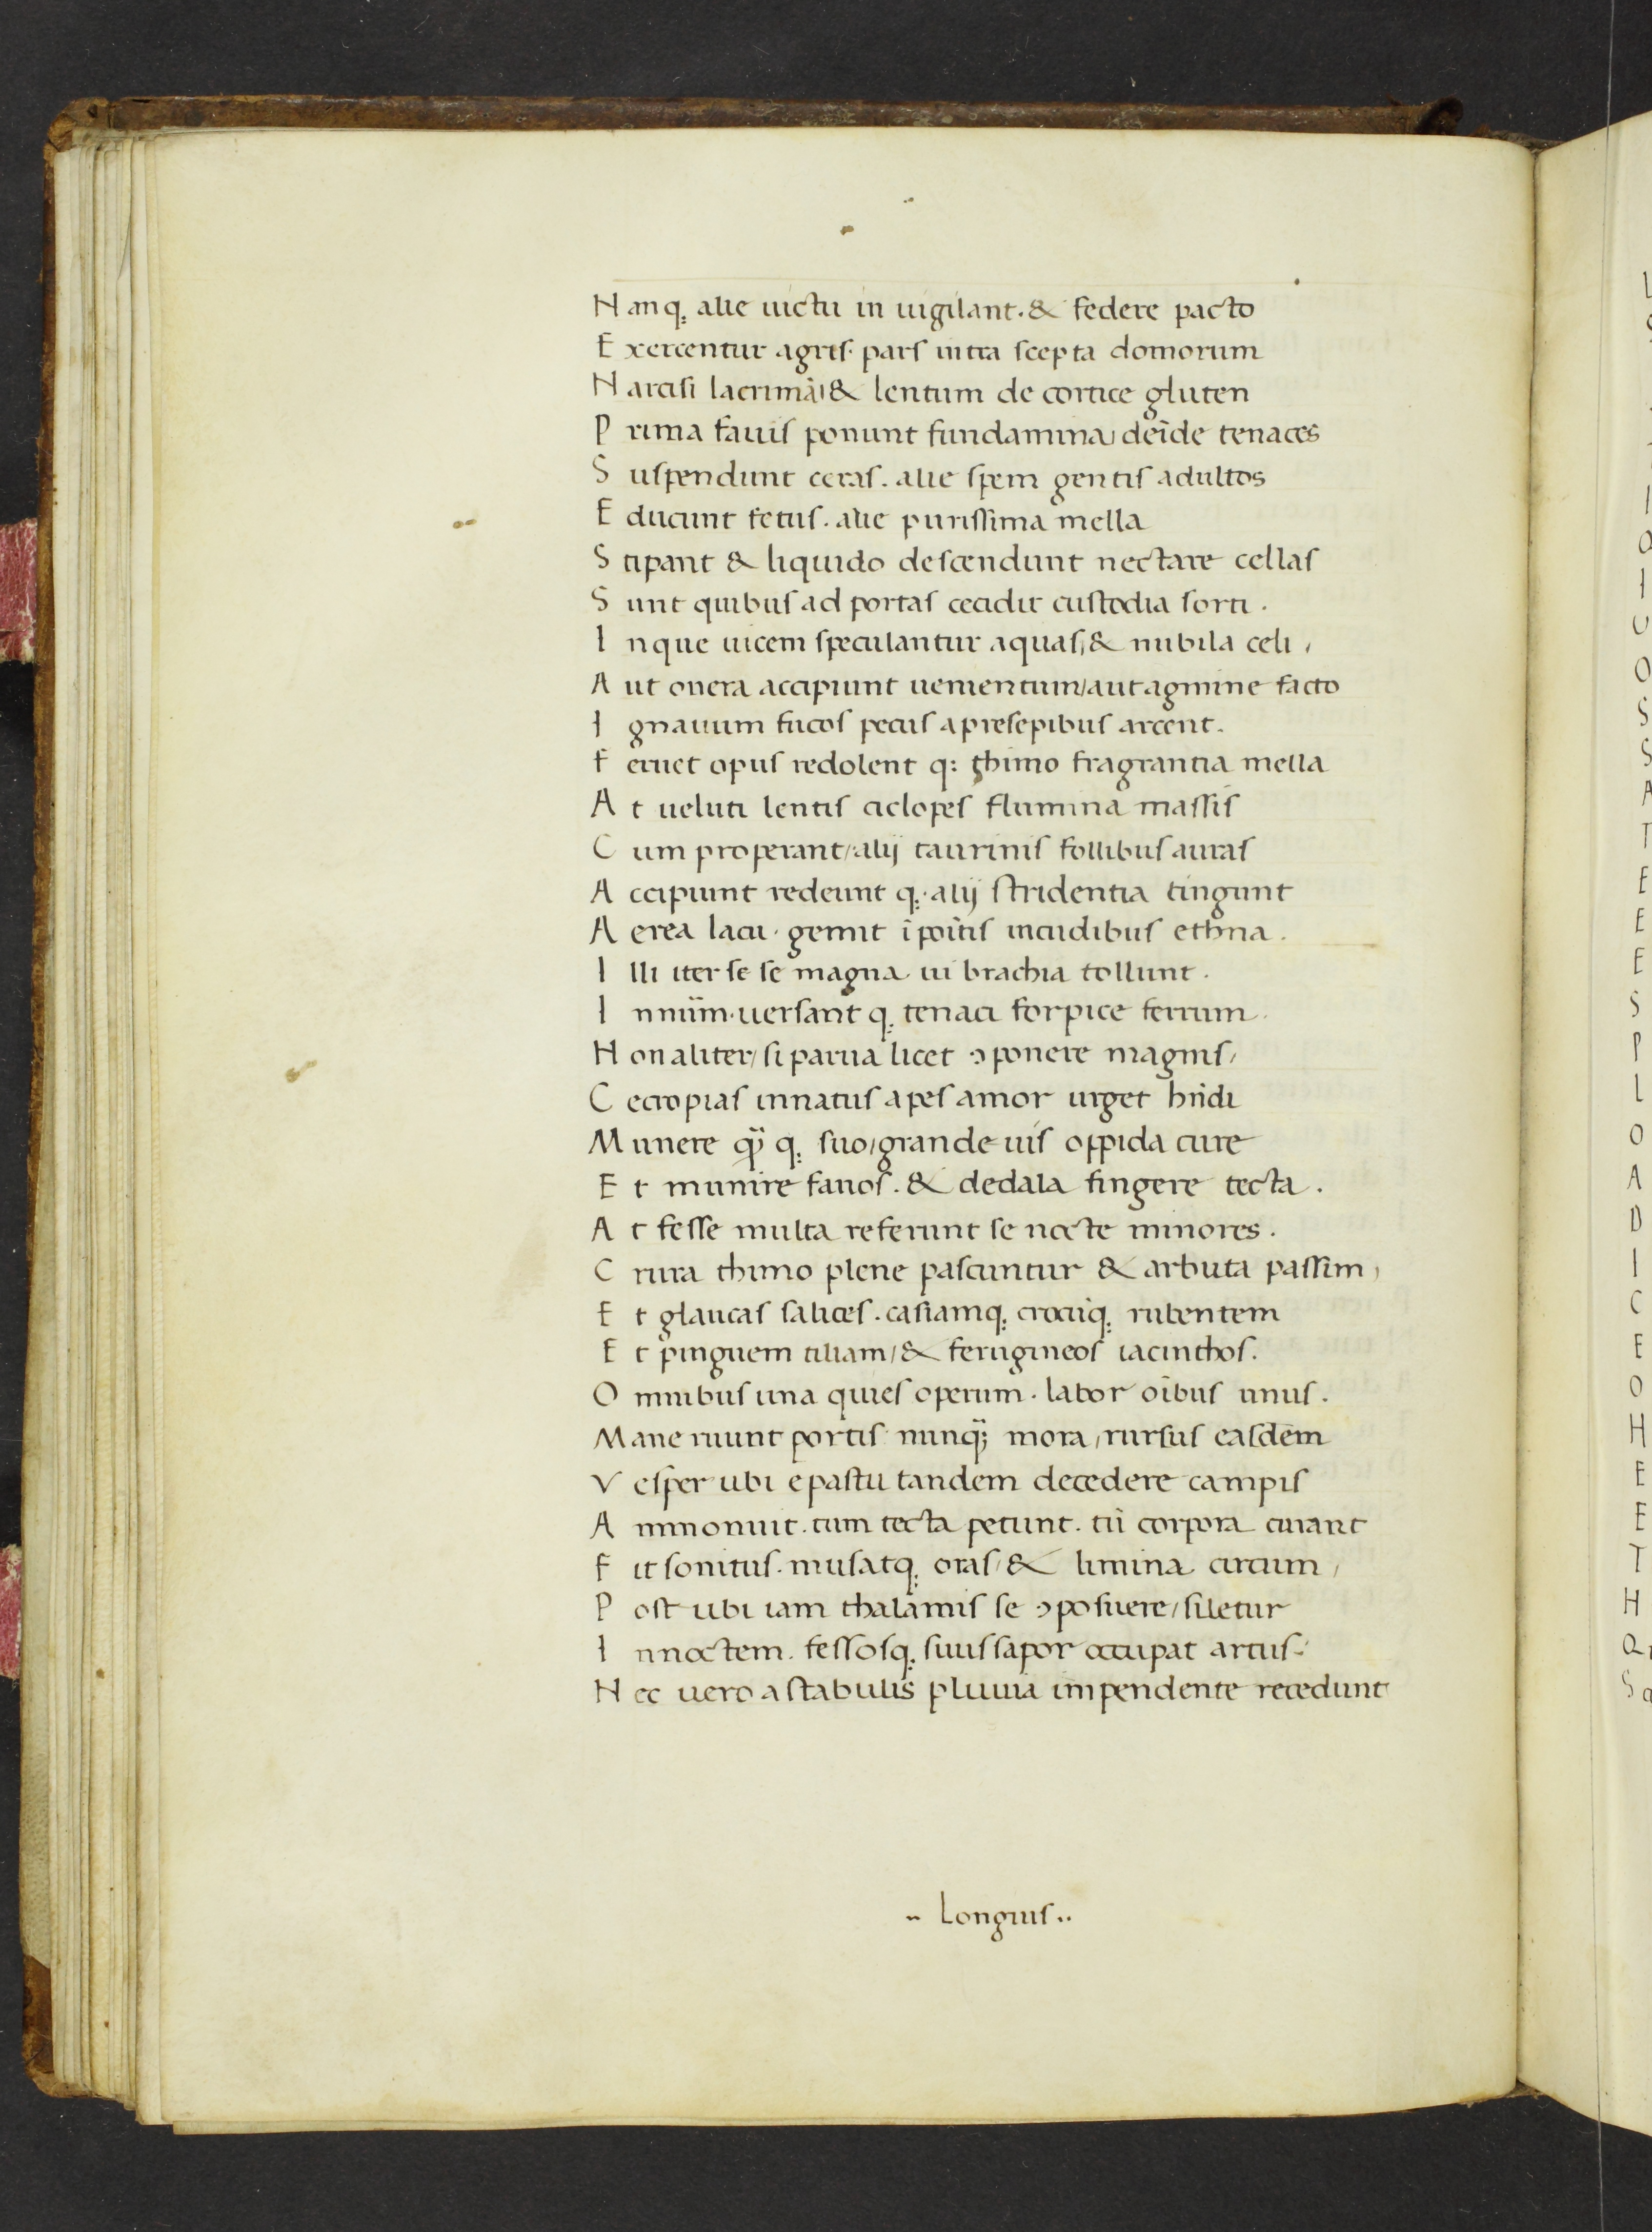 Nanq; alie uictu in uigilant. & federe pacto
Exercentur agris. pars intra scepta domorum
Narcisi lacrimā & lentum de cortice gluten
Prima fauis ponunt fundamina, deīde tenaces
Suspendunt ceras. alie spem gentis adultos
Educunt fetus. alie purissima mella
Stipant & liquido descendunt nectare cellas
Sunt quibus ad portas cecidit custodia sorti.
Inque uicem speculantur aquas, & nubila celi,
Aut onera accipiunt uenientum/aut agmine facto
Ignauum fucos pecus a presepibus arcent.
Feruet opus redolent q: thimo fragrantia mella
At ueluti lentis ciclopes flumina massis
Cum properant/alij taurinis follibus auras
Accipiunt redeunt q;. alij stridentia tingunt
Aerea lacu. gemit īpoītis incudibus ethna.
Illi iter se se magna ui brachia tollunt.
In nūm. uersant q; tenaci forpice ferrum.
Non aliter/si parua licet ɔponere magnis/
Cecropias innatus apes amor urget hn̄di
Munere q̄ q; suo/grande uis oppida cure
Et munire fauos. & dedala fingere tecta.
At fesse multa referunt se nocte minores.
Crura thimo plene pascuntur & arbuta passim,
Et glaucas salices. casiamq; crocūq; rubentem
Et pinguem tiliam/& ferugineos iacinthos.
Omnibus una quies operum. labor oībus unus.
Mane ruunt portis nunq̄; mora, rursus easdem
Vesper ubi e pastu tandem decedere campis
Ammonuit. tum tecta petunt. tū corpora curant
Fit sonitus. musatq; oras/& limina circum,
Post ubi iam thalamis se ɔposuere/siletur
In noctem. fessosq; suus sapor occupat artus.
Nec uero a stabulis pluuia impendente recedunt
.. Longius..